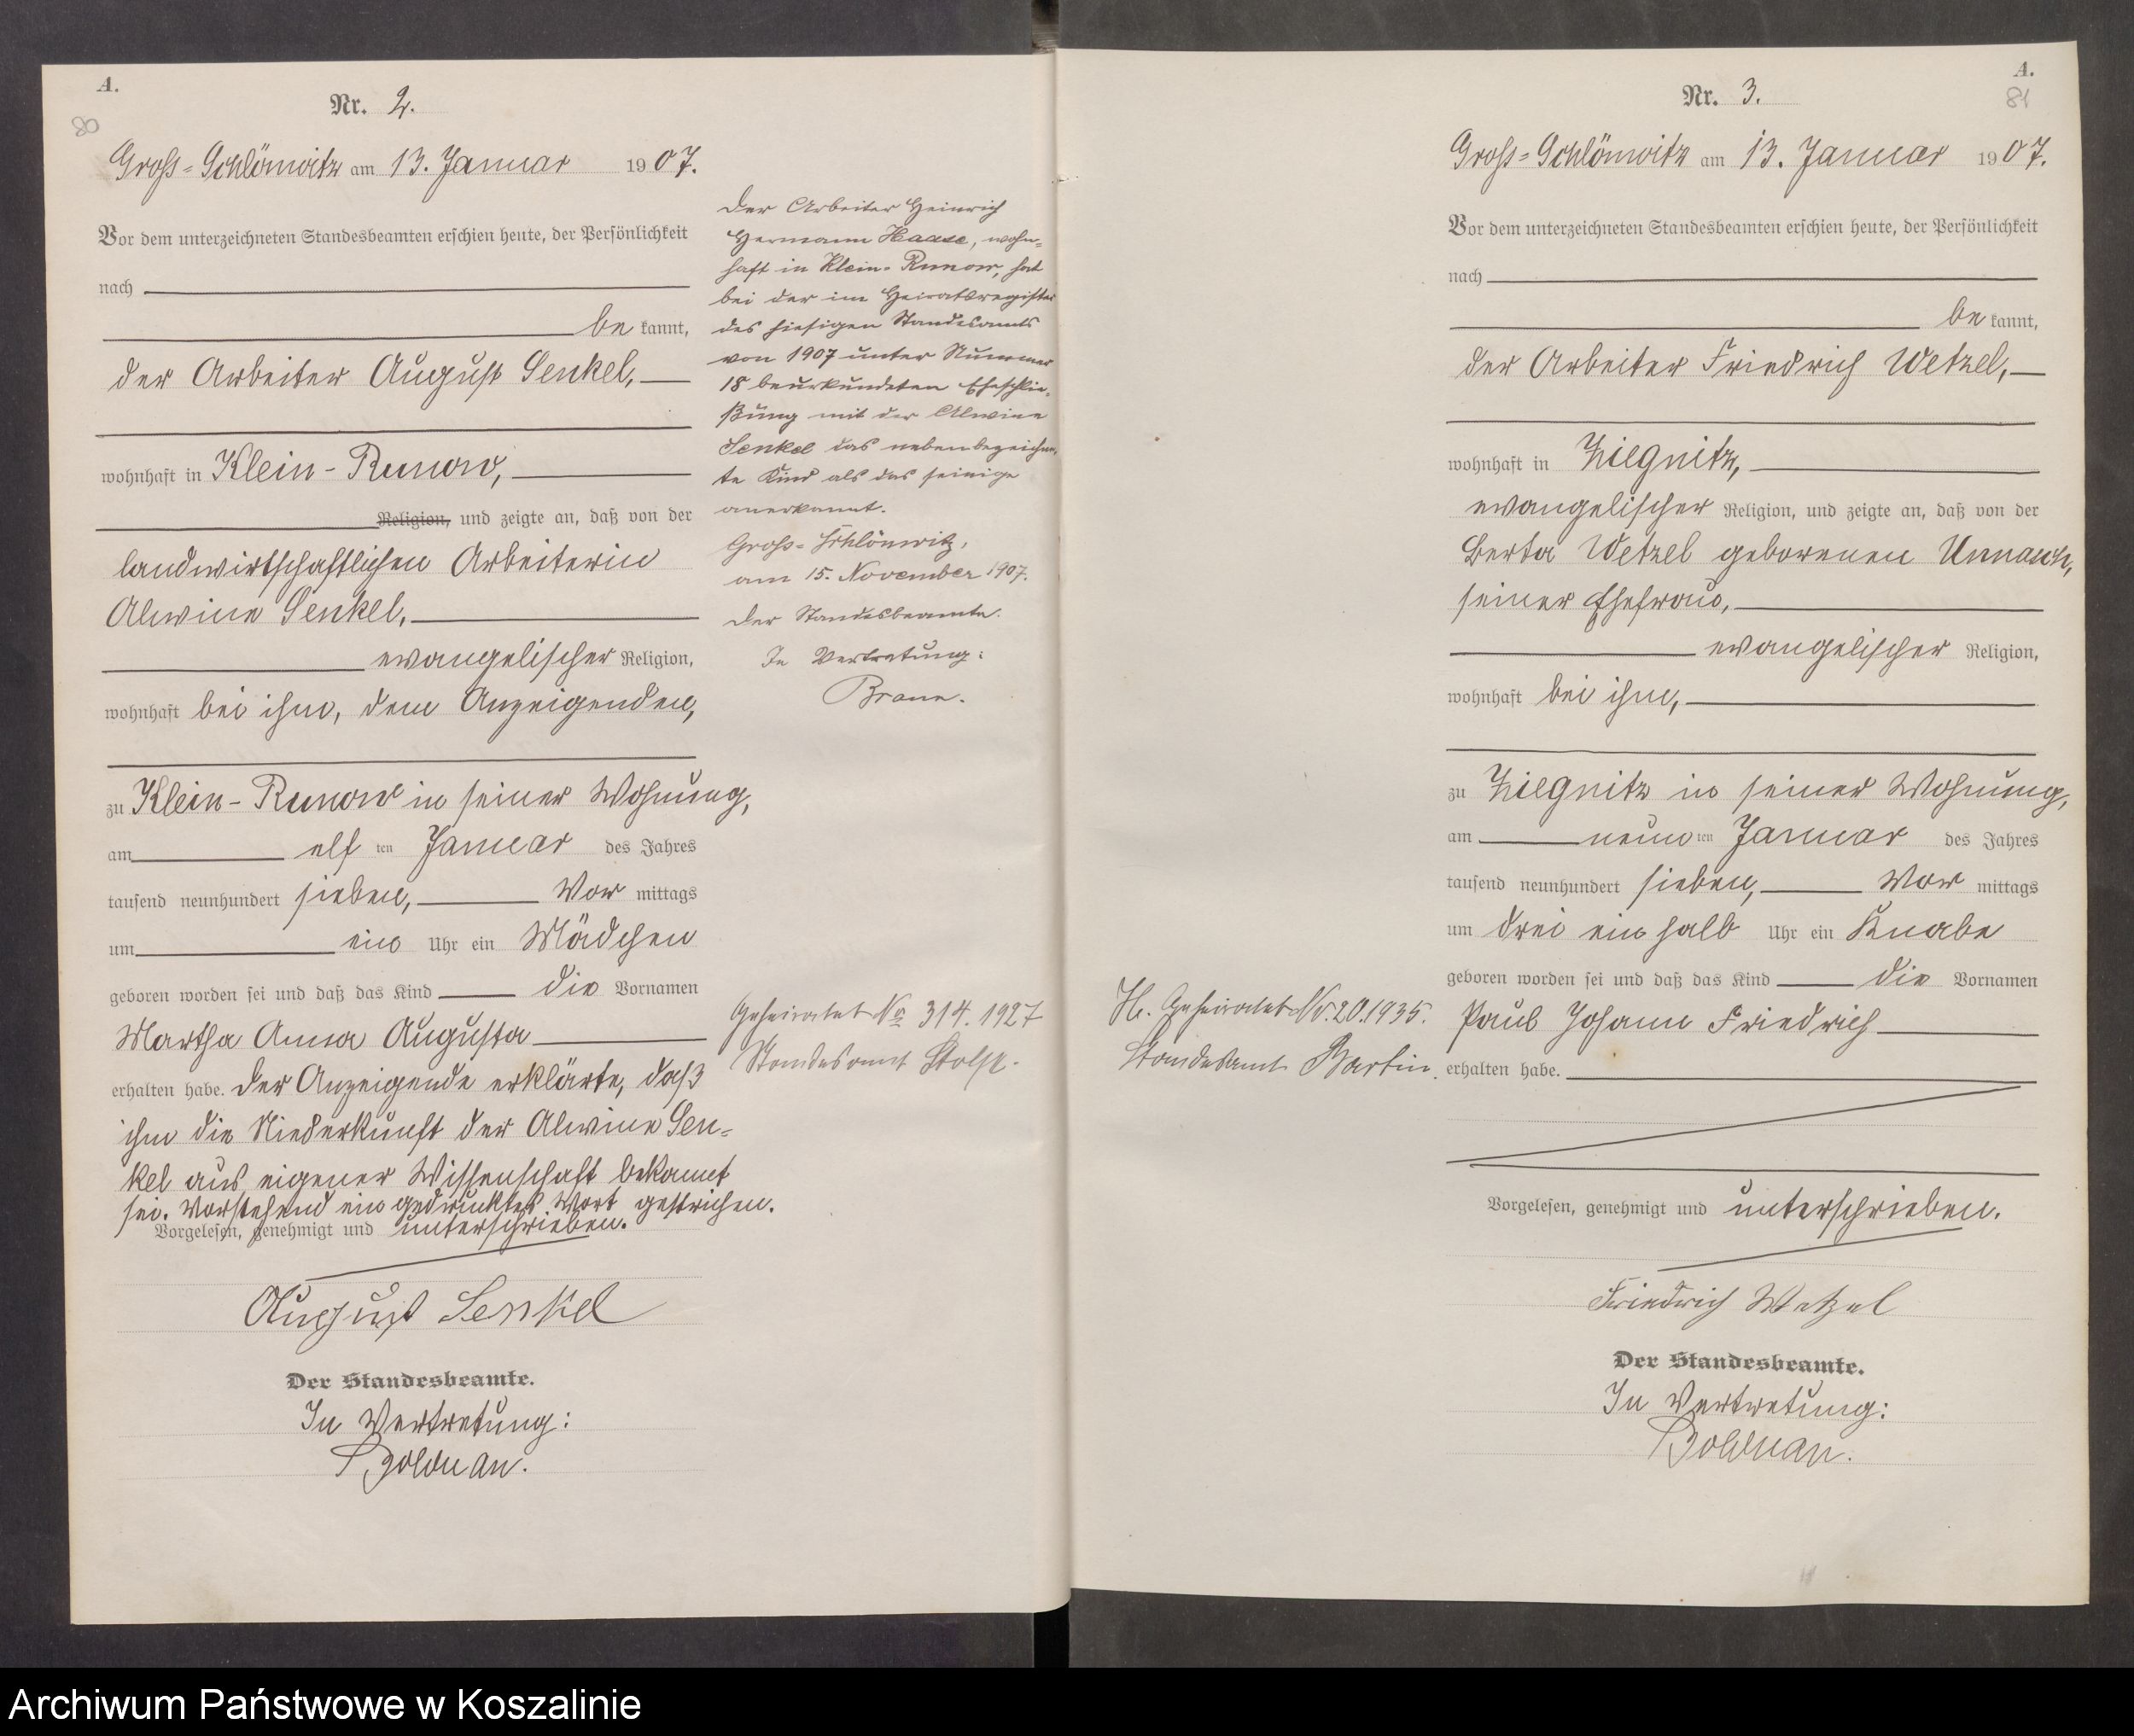 A.
80
Nr. 2.
Groß-Schlönwitz am 13. Januar 1907.
Vor dem unterzeichneten Standesbeamten erschien heute, der Persönlichkeit
nach
be kannt,
der Arbeiter August Senkel,
wohnhaft in Klein-Runow,
Religion, und zeigte an, daß von der
landwirtschaftlichen Arbeiterin
Alwine Senkel,
evangelischer Religion,
wohnhaft bei ihm, dem Anzeigenden,
zu Klein-Runow in seiner Wohnung,
am elf ten Januar des Jahres
tausend neunhundert sieben, Vor mittags
um ein Uhr ein Mädchen
geboren worden sei und daß das Kind die Vornamen
Martha Anna Augusta
erhalten habe. Der Anzeigende erklärte, daß
ihm die Niederkunft der Alwine Sen-
kel aus eigener Wissenschaft bekannt
sei. Vorstehend ein gedrucktes Wort gestrichen.
Vorgelesen, genehmigt und unterschrieben.
August Senkel
Der Standesbeamte.
In Vertretung:
Der Arbeiter Heinrich
Hermann Haase, wohn-
haft in Klein-Runow, hat
bei der im Heiratsregister
des hiesigen Standesamts
von 1907 unter Nummer
18 beurkundeten Eheschlie-
ßung mit der Alwine
Senkel das nebenbezeichne-
te Kind als das seinige
anerkannt.
Groß-Schlönwitz,
am 15. November 1907.
Der Standesbeamte.
In Vertretung:
Geheiratet No 314. 1927
Standesamt Stolp.
A.
81
Nr. 3.
Groß-Schlönwitz am 13. Januar 1907.
Vor dem unterzeichneten Standesbeamten erschien heute, der Persönlichkeit
nach
be kannt,
der Arbeiter Friedrich Wetzel,
wohnhaft in Ziegnitz,
evangelischer Religion, und zeigte an, daß von der
Berta Wetzel geborenen
seiner Ehefrau,
evangelischer Religion,
wohnhaft bei ihm,
zu Ziegnitz in seiner Wohnung,
am neun ten Januar des Jahres
tausend neunhundert sieben, Vor mittags
um drei ein halb Uhr ein Knabe
geboren worden sei und daß das Kind die Vornamen
Paul Johann Friedrich
erhalten habe.
Vorgelesen, genehmigt und unterschrieben.
Friedrich Wetzel
Der Standesbeamte.
In Vertretung:
Geheiratet Nr. 20.1935.
Standesamt Bartin.
Archiwum Państwowe w Koszalinie